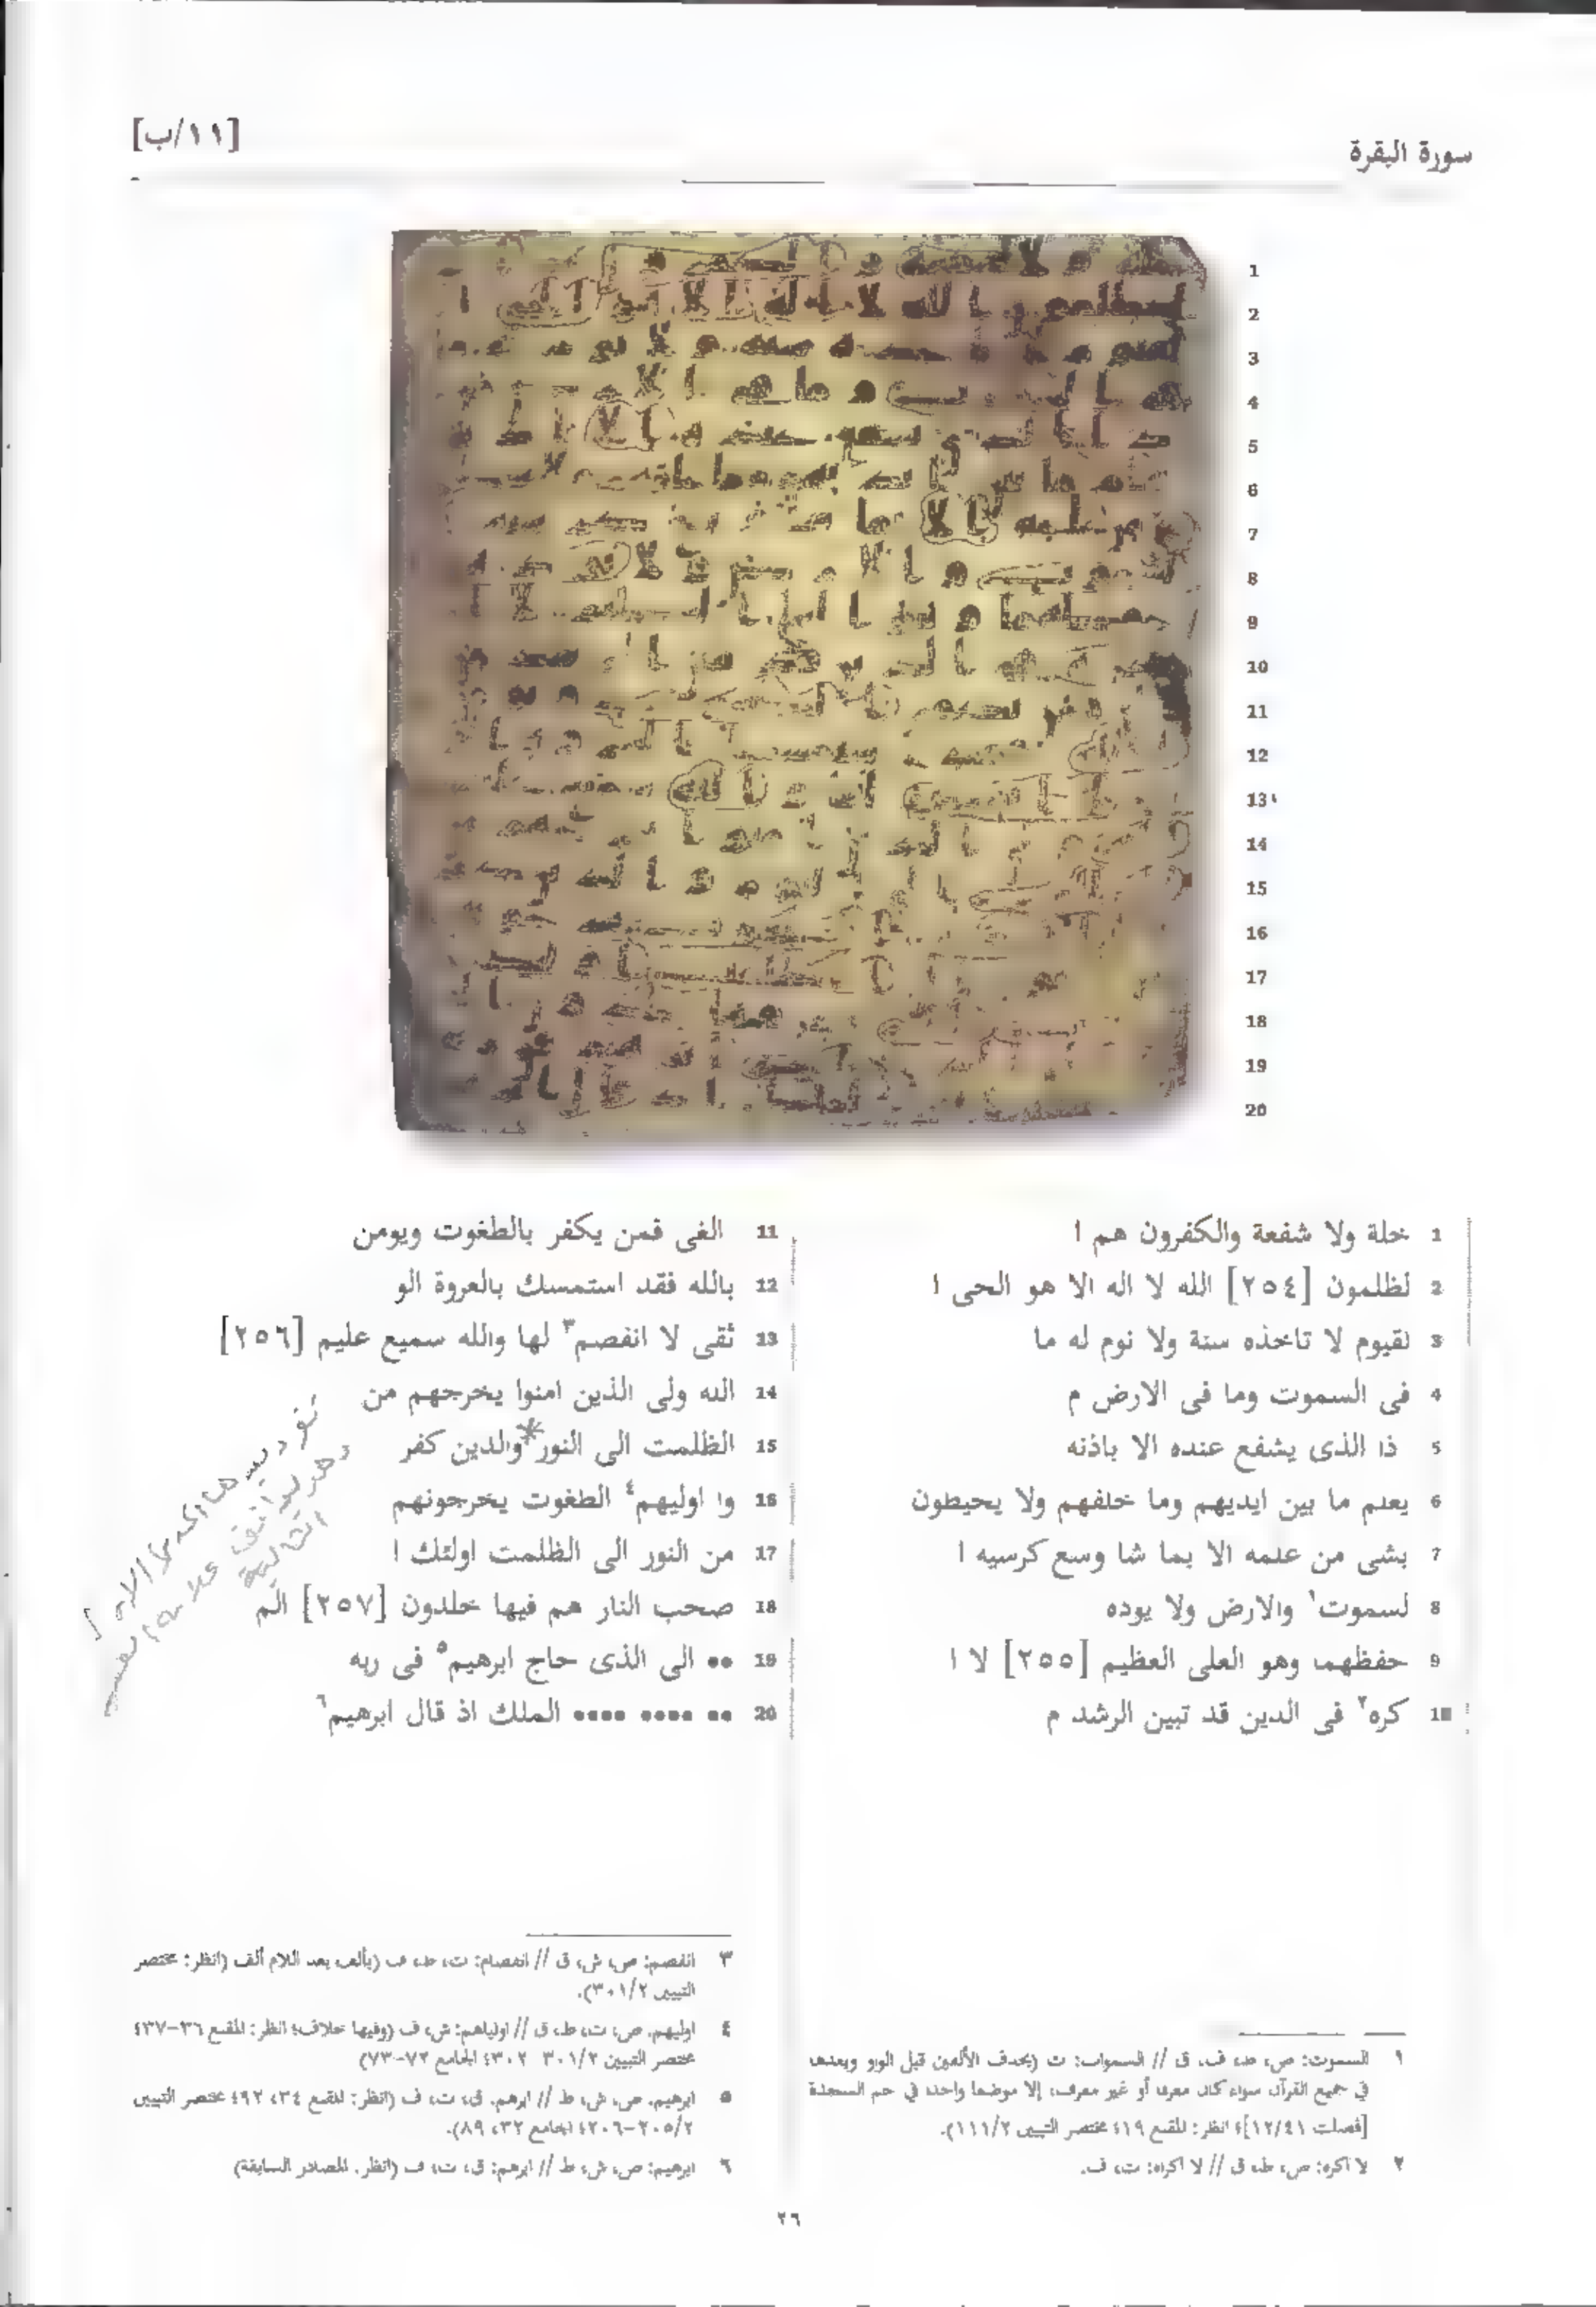 [١١/ب]
سورة البقرة
1 خلة ولا شفعة والكفرون هم ا
2 لظلمون [٢٥٤] الله لا اله الا هو الحى ا
3 لقيوم لا تاخذه سنة ولا نوم له ما
4 فى السموت وما فى الارض م
5 ذا الذى يشفع عنده الا باذنه
6 يعلم ما بين ايديهم وما خلفهم ولا يحيطون
7 بشى من علمه الا بما شا وسع كرسيه ا
8 لسموت١ والارض ولا يوده
9 حفظهما وهو العلى العظيم [٢٥٥] لا ا
10 كره٢ فى الدين قد تبين الرشد م
11 الغى فمن يكفر بالطغوت ويومن
12 بالله فقد استمسك بالعروة الو
13 ثقى لا انفصم٣ لها والله سميع عليم [٢٥٦]
14 الله ولى الذين امنوا يخرجهم من
15 الظلمت الى النور* والذين كفر
16 وا اوليهم٤ الطغوت يخرجونهم
17 من النور الى الظلمت اولئك ا
18 صحب النار هم فيها خلدون [٢٥٧] الم
19 •• الى الذى حاج ابرهيم٥ فى ربه
20 •• •••• •••• الملك اذ قال ابرهيم٦
١ السموت: ص، ط، ف، ق // السموات: ت (بحذف الألفين قبل الواو وبعدها
في جميع القرآن سواء كان معرف أو غير معرف، إلا موضعا واحدا في حم السجدة
[فصلت ١٢/٤١]؛ انظر: المقنع ١٩؛ مختصر التبيين ١١١/٢).
٢ لا اكره: ص، ط، ق // لا اكراه: ت، ف.
٣ انفصم: ص، ش، ق // انفصام: ت، ط، ف (بألف بعد اللام ألف (انظر: مختصر
التبيين ٣٠١/٢).
٤ اوليهم: ص، ت، ط، ق // اولياهم: ش، ف (وفيها خلاف؛ انظر: المقنع ٣٦-٣٧؛
مختصر التبيين ٣٠١/٢-٣٠٢؛ الجامع ٧٢-٧٣)
٥ ابرهيم: ص، ش، ط // ابرهم: ق، ت، ف (انظر: المقنع ٣٤، ٩٢؛ مختصر التبيين
٢٠٥/٢-٢٠٦؛ الجامع ٣٢، ٨٩).
٦ ابرهيم: ص، ش، ط // ابرهم: ق، ت، ف (انظر: المصادر السابقة)
٢٦